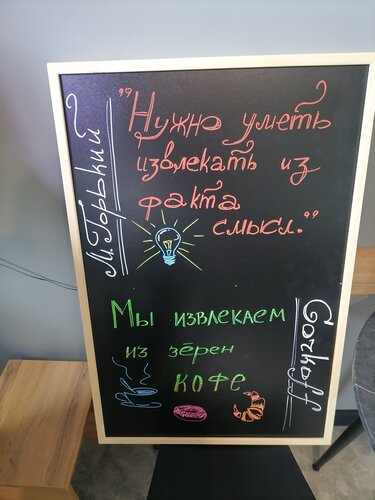 М. Горький
"Нужно уметь
извлекать из
факта
смысл."
Мы извлекаем
из зёрен
кофе
Gorkoff